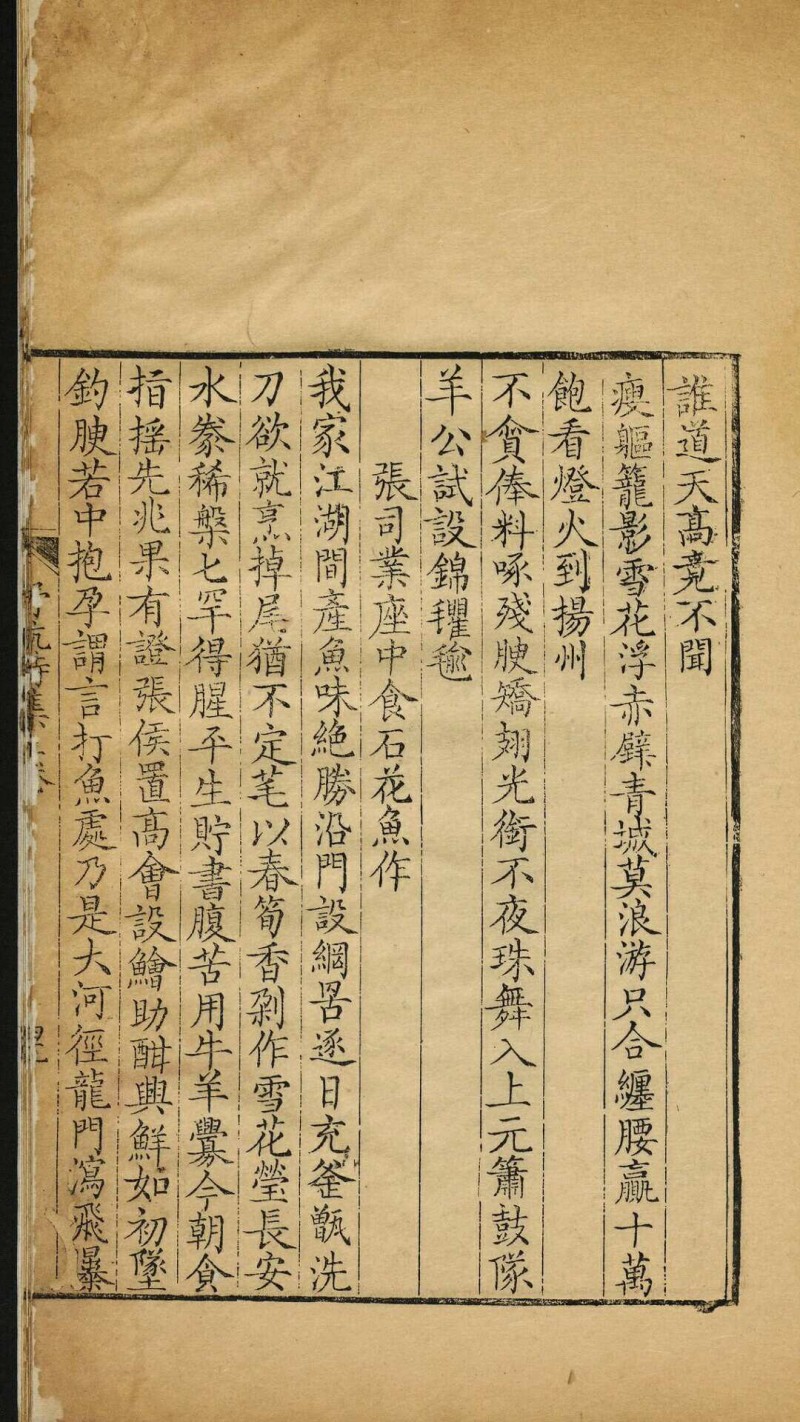 誰道天髙竟不聞
瘦軀籠影雪花浮赤壁青城莫浪游只合纏腰贏十萬
飽看燈火到揚州
不貪俸料啄殘腴矯翅光銜不夜珠舞入上元簫鼓隊
羊公試設錦氍毹
張司業座中食石花魚作
我家江湖間產魚味絶勝沿門設網罟逐日充釜甑洗
刀欲就烹掉尾猶不定芼以春筍香剥作雪花瑩長安
水族稀槃匕罕得腥平生貯書腹苦用牛羊釁今朝食
指揺先兆果有證張侯置髙會設鱠助酣興鮮如初墜
釣腴若中抱孕謂言打魚處乃是大河徑龍門瀉飛瀑